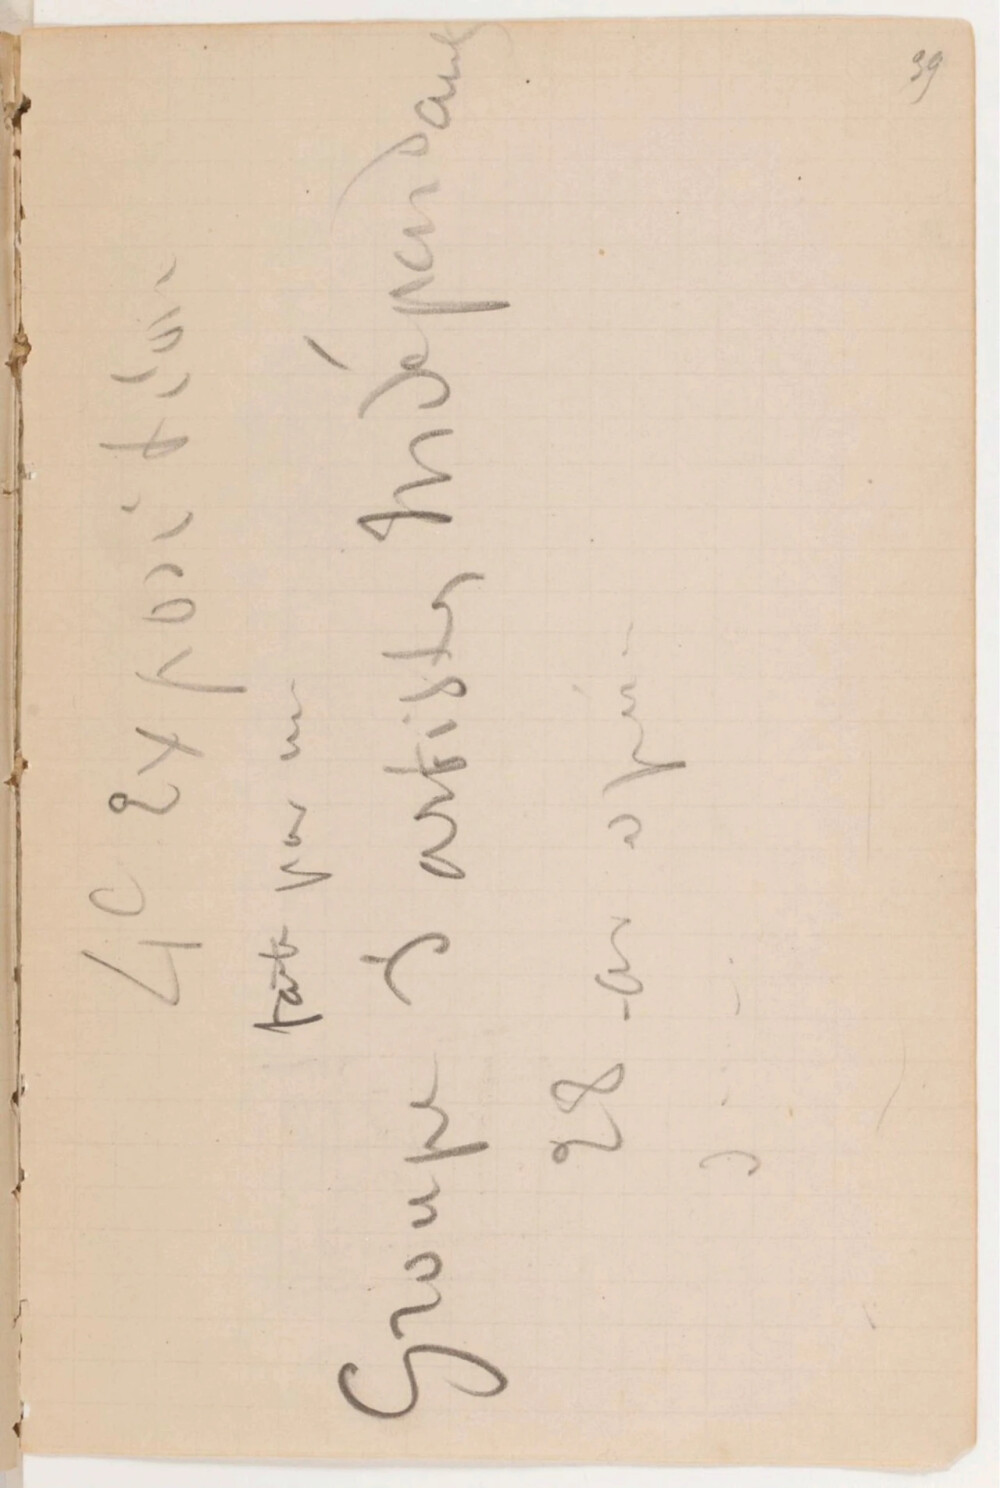 39
4e Exposition
faite par un
Groupe d'artistes Indépendants
28 av